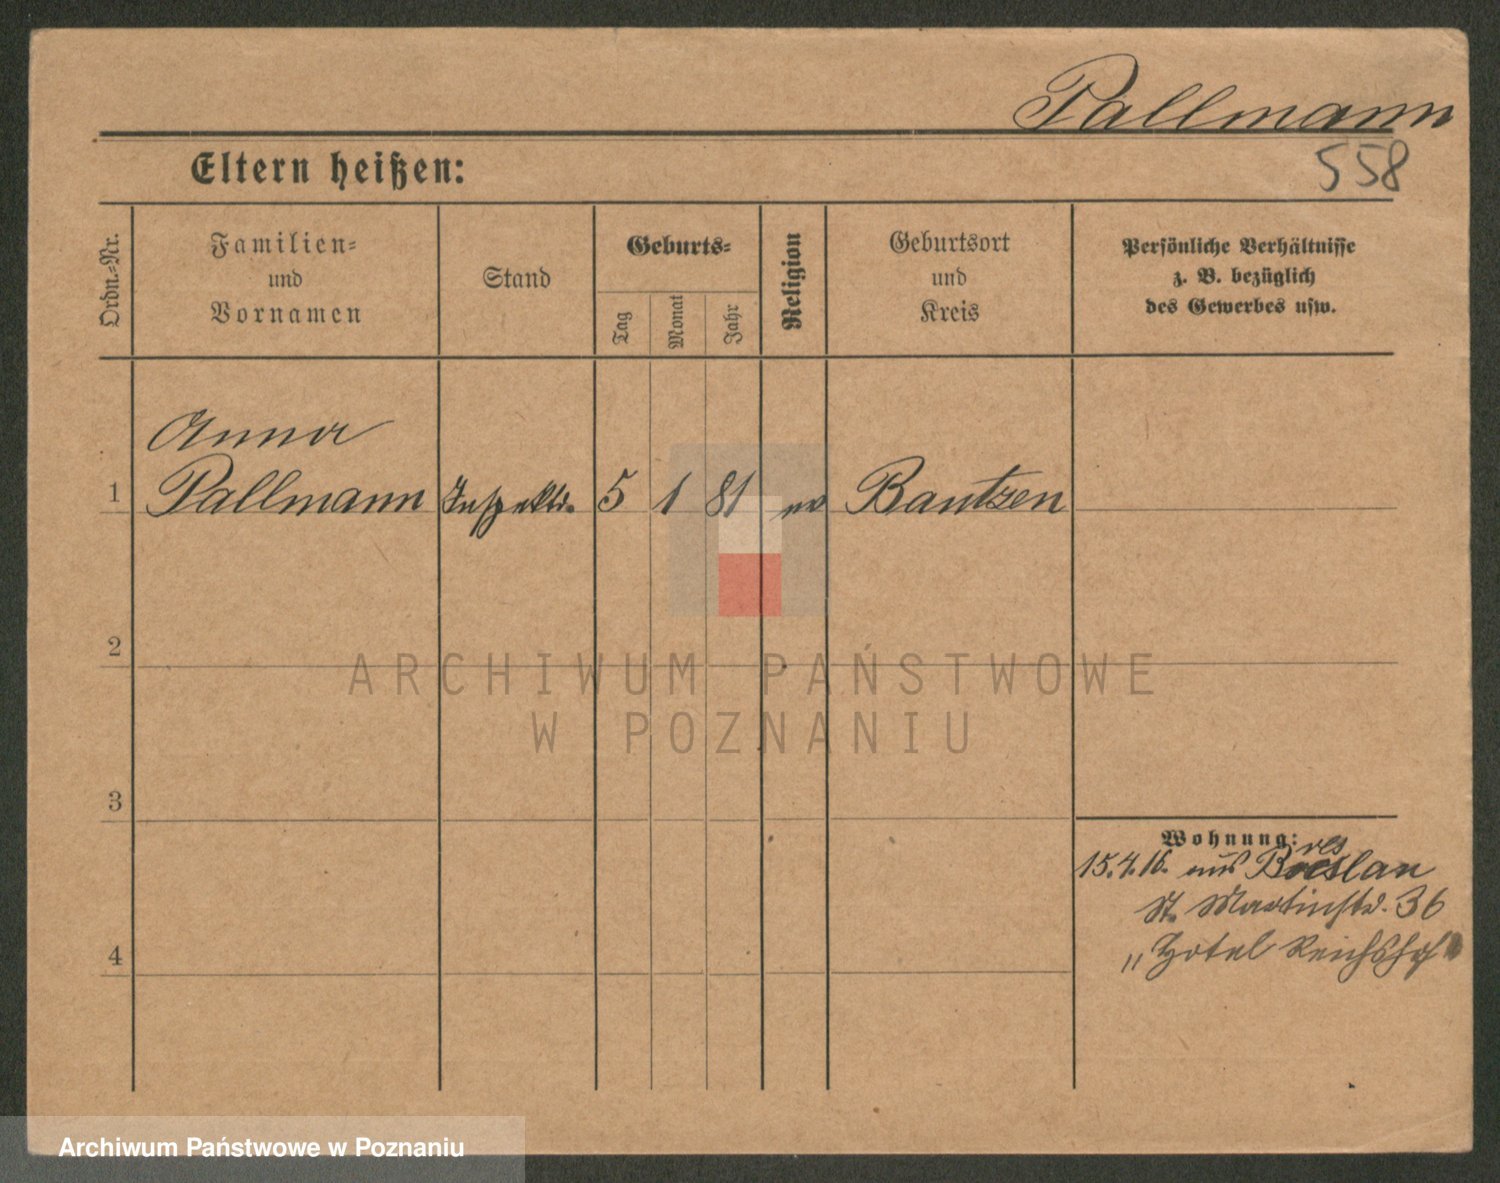 Pallmann
558
Eltern heißen:
Ordn.-Nr.
Familien-
und
Vornamen
Stand
Geburts-
Tag
Monat
Jahr
Religion
Geburtsort
und
Kreis
Persönliche Verhältnisse
z. B. bezüglich
des Gewerbes usw.
Anna
1 Pallmann Inspektr. 5 1 81 ev Bautzen
2
ARCHIWUM PAŃSTWOWE
W POZNANIU
3
Wohnung:
15.4.16. aus Breslau
St. Martinstr. 36
"Hotel Reichshof"
4
Archiwum Państwowe w Poznaniu